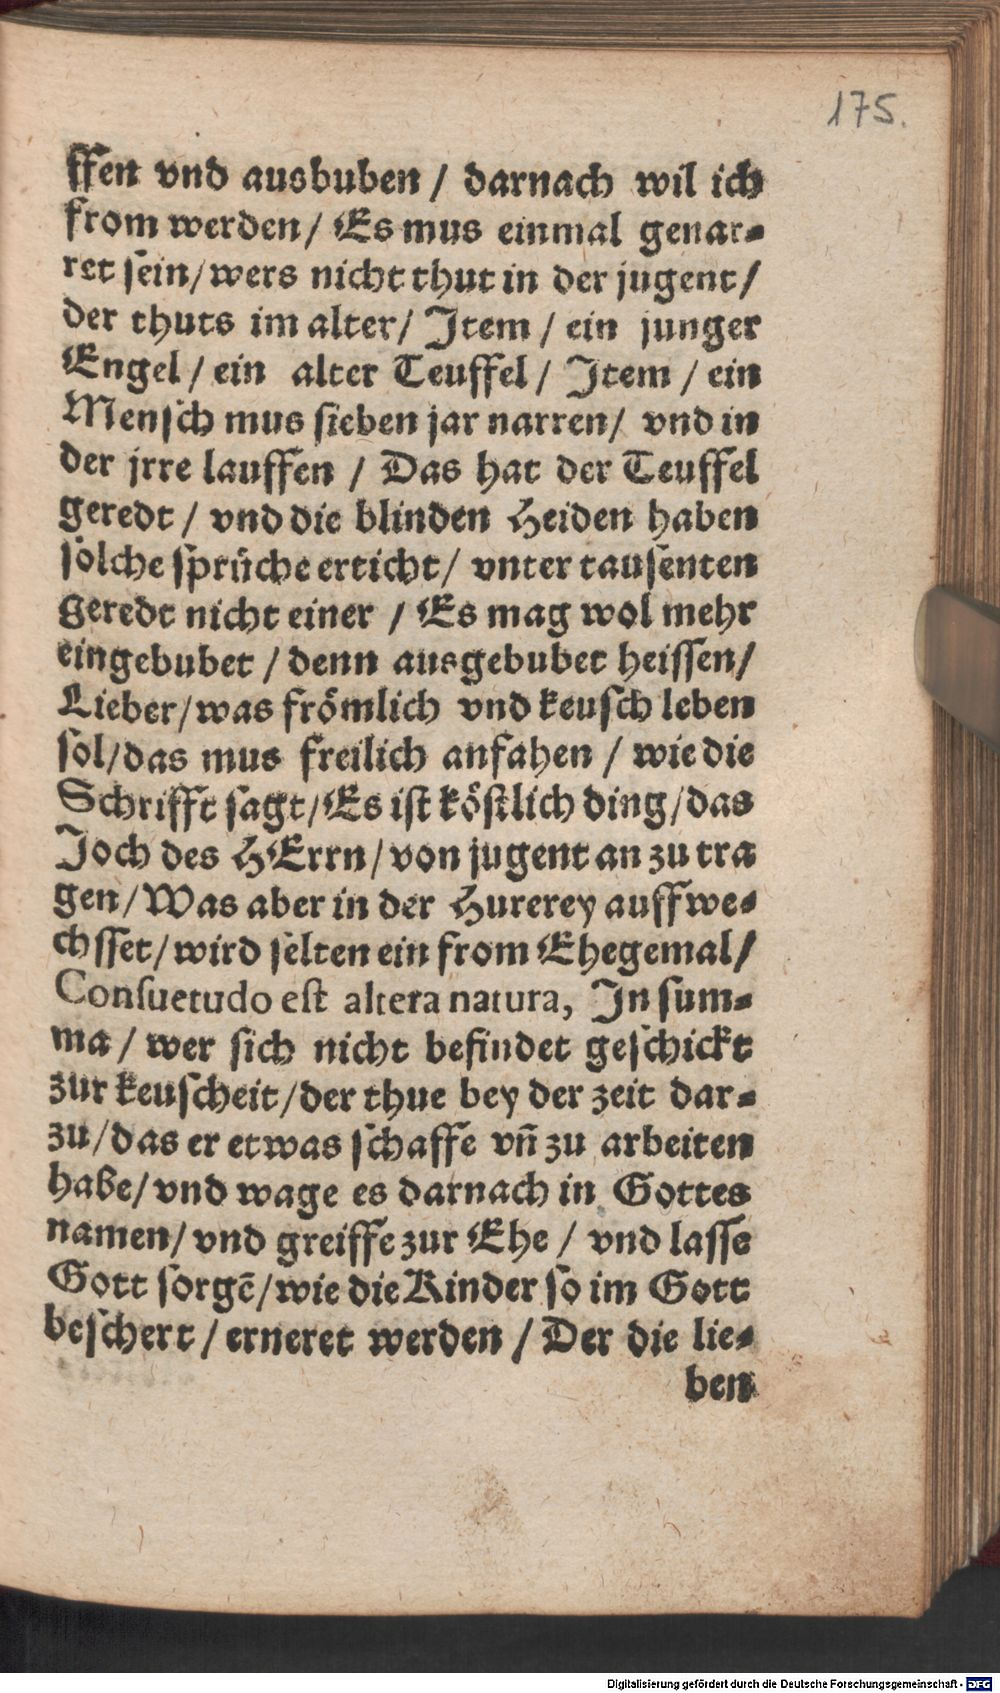 175.
ffen vnd ausbuben / darnach wil ich
from werden / Es mus einmal genar-
ret sein / wers nicht thut in der jugent /
der thuts im alter / Item / ein junger
Engel / ein alter Teuffel / Item / ein
Mensch mus sieben jar narren / vnd in
der jrre lauffen / Das hat der Teuffel
geredt / vnd die blinden Heiden haben
solche sprüche erticht / vnter tausenten
geredt nicht einer / Es mag wol mehr
eingebubet / denn ausgebubet heissen /
Lieber / was frömlich vnd keusch leben
sol / das mus freilich anfahen / wie die
Schrifft sagt / Es ist köstlich ding / das
Joch des HErrn / von jugent an zu tra
gen / Was aber in der Hurerey auffwe-
chsset / wird selten ein from Ehegemal /
Consuetudo est altera natura, In sum-
ma / wer sich nicht befindet geschickt
zur keuscheit / der thue bey der zeit dar-
zu / das er etwas schaffe vñ zu arbeiten
habe / vnd wage es darnach in Gottes
namen / vnd greiffe zur Ehe / vnd lasse
Gott sorgē / wie die Kinder so im Gott
beschert / erneret werden / Der die lie-
ben
Digitalisierung gefördert durch die Deutsche Forschungsgemeinschaft - DFG